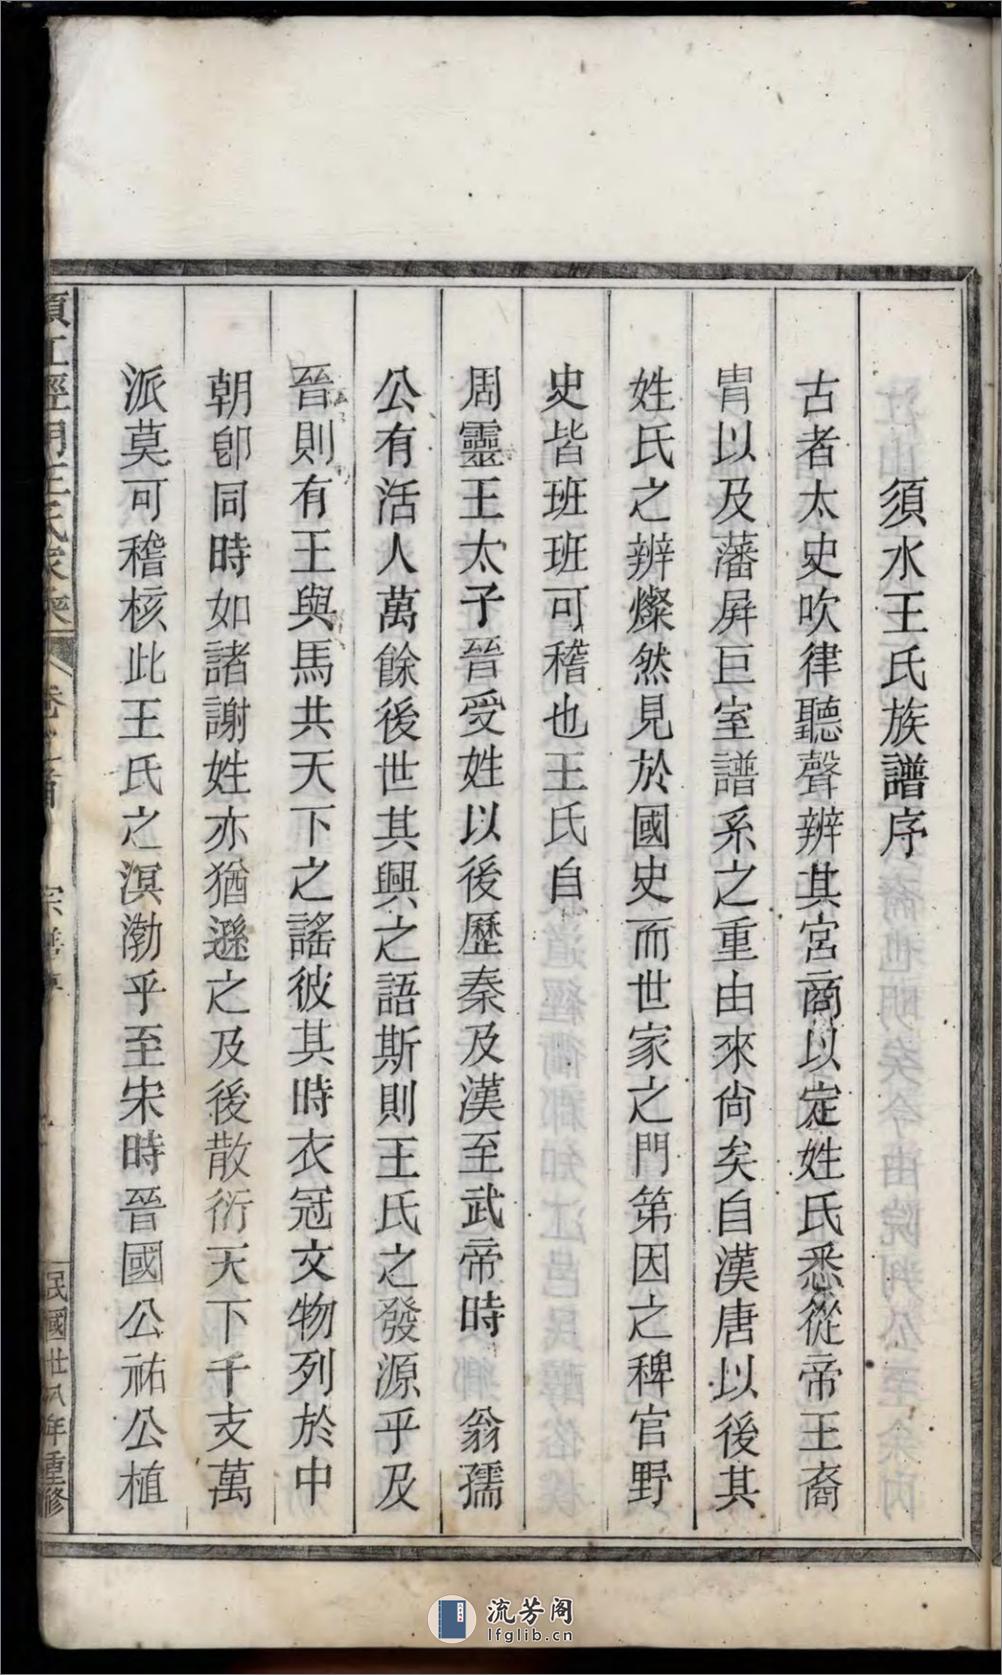 須水王氏族譜序
古者太史吹律聽聲辨其宮商以定姓氏悉從帝王裔
胄以及藩屏巨室譜系之重由來尙矣自漢唐以後其
姓氏之辨燦然見於國史而世家之門第因之稗官野
史皆班班可稽也王氏自
周靈王太子晉受姓以後歷秦及漢至武帝時翁孺
公有活人萬餘後世其興之語斯則王氏之發源乎及
晉則有王與馬共天下之謠彼其時衣冠文物列於中
朝卽同時如諸謝姓亦猶遜之及後散衍天下千支萬
派莫可稽核此王氏之溟渤乎至宋時晉國公祐公植
民國廿八年重修
流芳阁
lfglib.cn